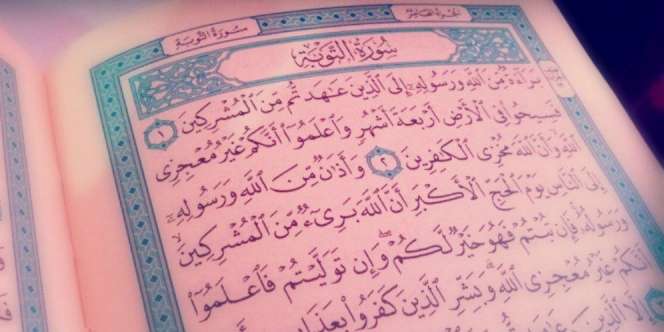 سُورَةُ التَّوۡبَةِ
الجزء العاشر
سُورَةُ التَّوۡبَةِ
بَرَآءَةٌ مِّنَ ٱللَّهِ وَرَسُولِهِۦٓ إِلَى ٱلَّذِينَ عَٰهَدتُّم مِّنَ ٱلۡمُشۡرِكِينَ ١
فَسِيحُواْ فِي ٱلۡأَرۡضِ أَرۡبَعَةَ أَشۡهُرٖ وَٱعۡلَمُوٓاْ أَنَّكُمۡ غَيۡرُ مُعۡجِزِي
ٱللَّهِ وَأَنَّ ٱللَّهَ مُخۡزِي ٱلۡكَٰفِرِينَ ٢ وَأَذَٰنٞ مِّنَ ٱللَّهِ وَرَسُولِهِۦٓ
إِلَى ٱلنَّاسِ يَوۡمَ ٱلۡحَجِّ ٱلۡأَكۡبَرِ أَنَّ ٱللَّهَ بَرِيٓءٞ مِّنَ ٱلۡمُشۡرِكِينَ
وَرَسُولُهُۥۚ فَإِن تُبۡتُمۡ فَهُوَ خَيۡرٞ لَّكُمۡۖ وَإِن تَوَلَّيۡتُمۡ فَٱعۡلَمُوٓاْ
أَنَّكُمۡ غَيۡرُ مُعۡجِزِي ٱللَّهِۗ وَبَشِّرِ ٱلَّذِينَ كَفَرُواْ بِعَذَابٍ
إِلَّا ٱلَّذِينَ